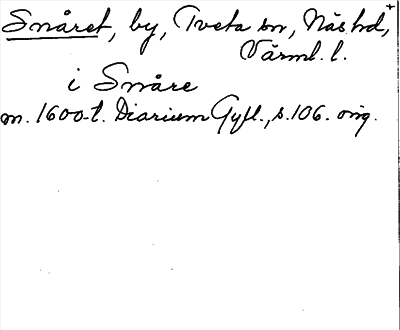 Snåret, by, Tveta sn, Näs hd,+
Värml. l.
i Snåre
m. 1600-t. Diarium Gyll., s. 106. orig.